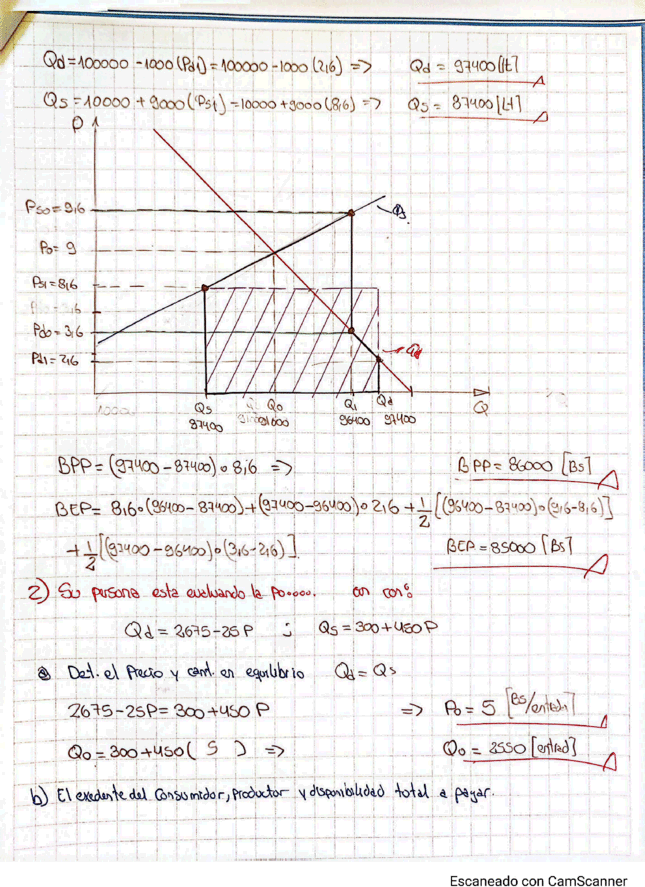 Qd = 100000 - 1000 (Pd1) = 100000 - 1000 (2,6) => Qd = 97400 [lt]
Qs = 10000 + 9000 (Ps1) = 10000 + 9000 (8,6) => Qs = 87400 [Lt]
P
Ps0 = 9,6
P0 = 9
Ps1 = 8,6
Pd0 = 3,6
Pd1 = 2,6
Qs
Qd
Qs Q0 Q1 Qd Q
87400 91000 96400 97400
BPP = (97400 - 87400) • 8,6 => BPP = 86000 [Bs]
BEP = 8,6 • (96400 - 87400) + (97400 - 96400) • 2,6 + 1/2 [(96400 - 87400) • (9,6 - 8,6)]
+ 1/2 [(97400 - 96400) • (3,6 - 2,6)] BEP = 85000 [Bs]
2) esta evaluando la con con:
Qd = 2675 - 25P ; Qs = 300 + 450P
a Det. el Precio y cant. en equilibrio Qd = Qs
2675 - 25P = 300 + 450 P => P0 = 5 [Bs/entrada]
Q0 = 300 + 450 ( 5 ) => Q0 = 2550 [entrad]
b) El exedente del Consumidor, Productor y disponibilidad total a pagar.
Escaneado con CamScanner